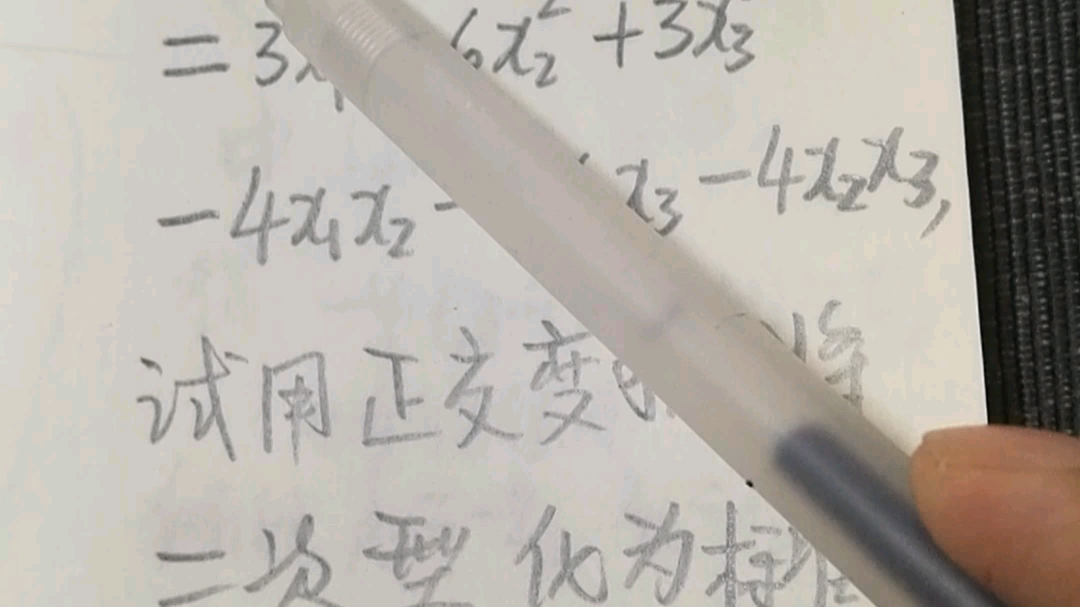 = 3x₁ 6x₂² + 3x₃
- 4x₁x₂ - x₃ - 4x₂x₃,
试用正交变 将
二次型化为标准